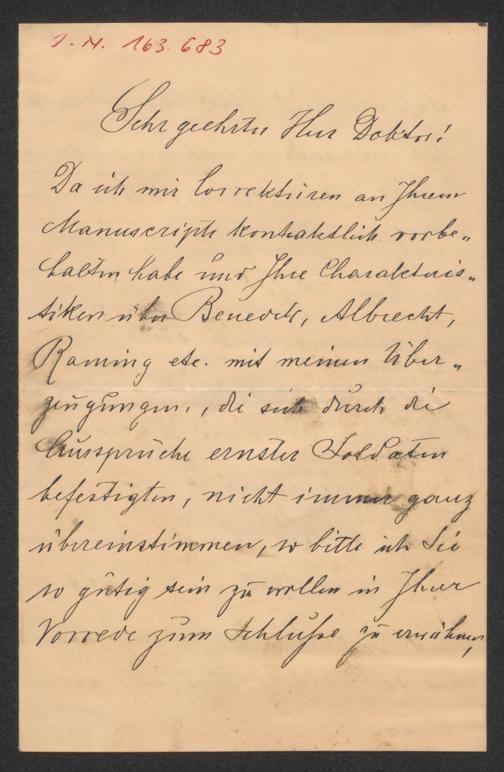 J. N. 163.683
Sehr geehrter Herr Doktor!
Da ich mir Correkturen an Ihrem
Manuscripte kontraktlich vorbe„
halten habe und Ihre Charakteris„
tiken über Benedek, Albrecht,
Raming etc. mit meinen Über„
zeugungen, die sich durch die
Aussprüche ernster Soldaten
befestigten, nicht immer ganz
übereinstimmen, so bitte ich Sie
so gütig sein zu wollen in Ihrer
Vorrede zum Schluße zu erwähnen,